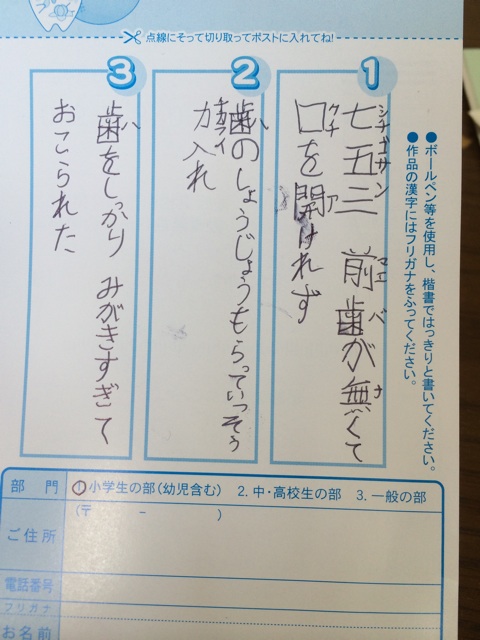 点線にそって切り取ってポストに入れてね!
●ボールペン等を使用し、楷書ではっきりと書いてください。
●作品の漢字にはフリガナをふってください。
1
シチゴサン マエ バ ナ
七五三 前歯が無くて
クチ ア
口を開けれず
2
ハ
歯のしょうじょうもらっていっそう
力入れ
3
ハ
歯をしっかり みがきすぎて
おこられた
部門 1.小学生の部(幼児含む) 2.中・高校生の部 3.一般の部
ご住所 (〒 - )
電話番号
フリガナ
お名前